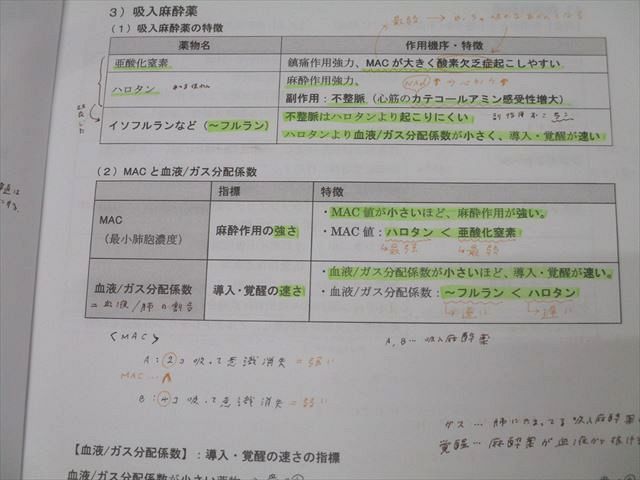 3）吸入麻酔薬
（1）吸入麻酔薬の特徴
薬物名 作用機序・特徴
亜酸化窒素 鎮痛作用強力、MACが大きく酸素欠乏症起こしやすい
ハロタン 麻酔作用強力、
副作用：不整脈（心筋のカテコールアミン感受性増大）
イソフルランなど（～フルラン） 不整脈はハロタンより起こりにくい
ハロタンより血液/ガス分配係数が小さく、導入・覚醒が速い
（2）MACと血液/ガス分配係数
指標 特徴
MAC
（最小肺胞濃度）
麻酔作用の強さ
・MAC値が小さいほど、麻酔作用が強い。
・MAC値：ハロタン < 亜酸化窒素
最強 最弱
血液/ガス分配係数
=血液/肺の割合
導入・覚醒の速さ
・血液/ガス分配係数が小さいほど、導入・覚醒が速い。
・血液/ガス分配係数：～フルラン < ハロタン
速い 遅い
〈MAC〉
A,B… 吸入麻酔薬
A：②コ吸って意識消失=強い
MAC…
B：④コ吸って意識消失=弱い
ガス…肺にたまってる吸入麻酔薬
覚醒…麻酔薬が血液から抜け
【血液/ガス分配係数】：導入・覚醒の速さの指標
血液/ガス分配係数が小さい薬物